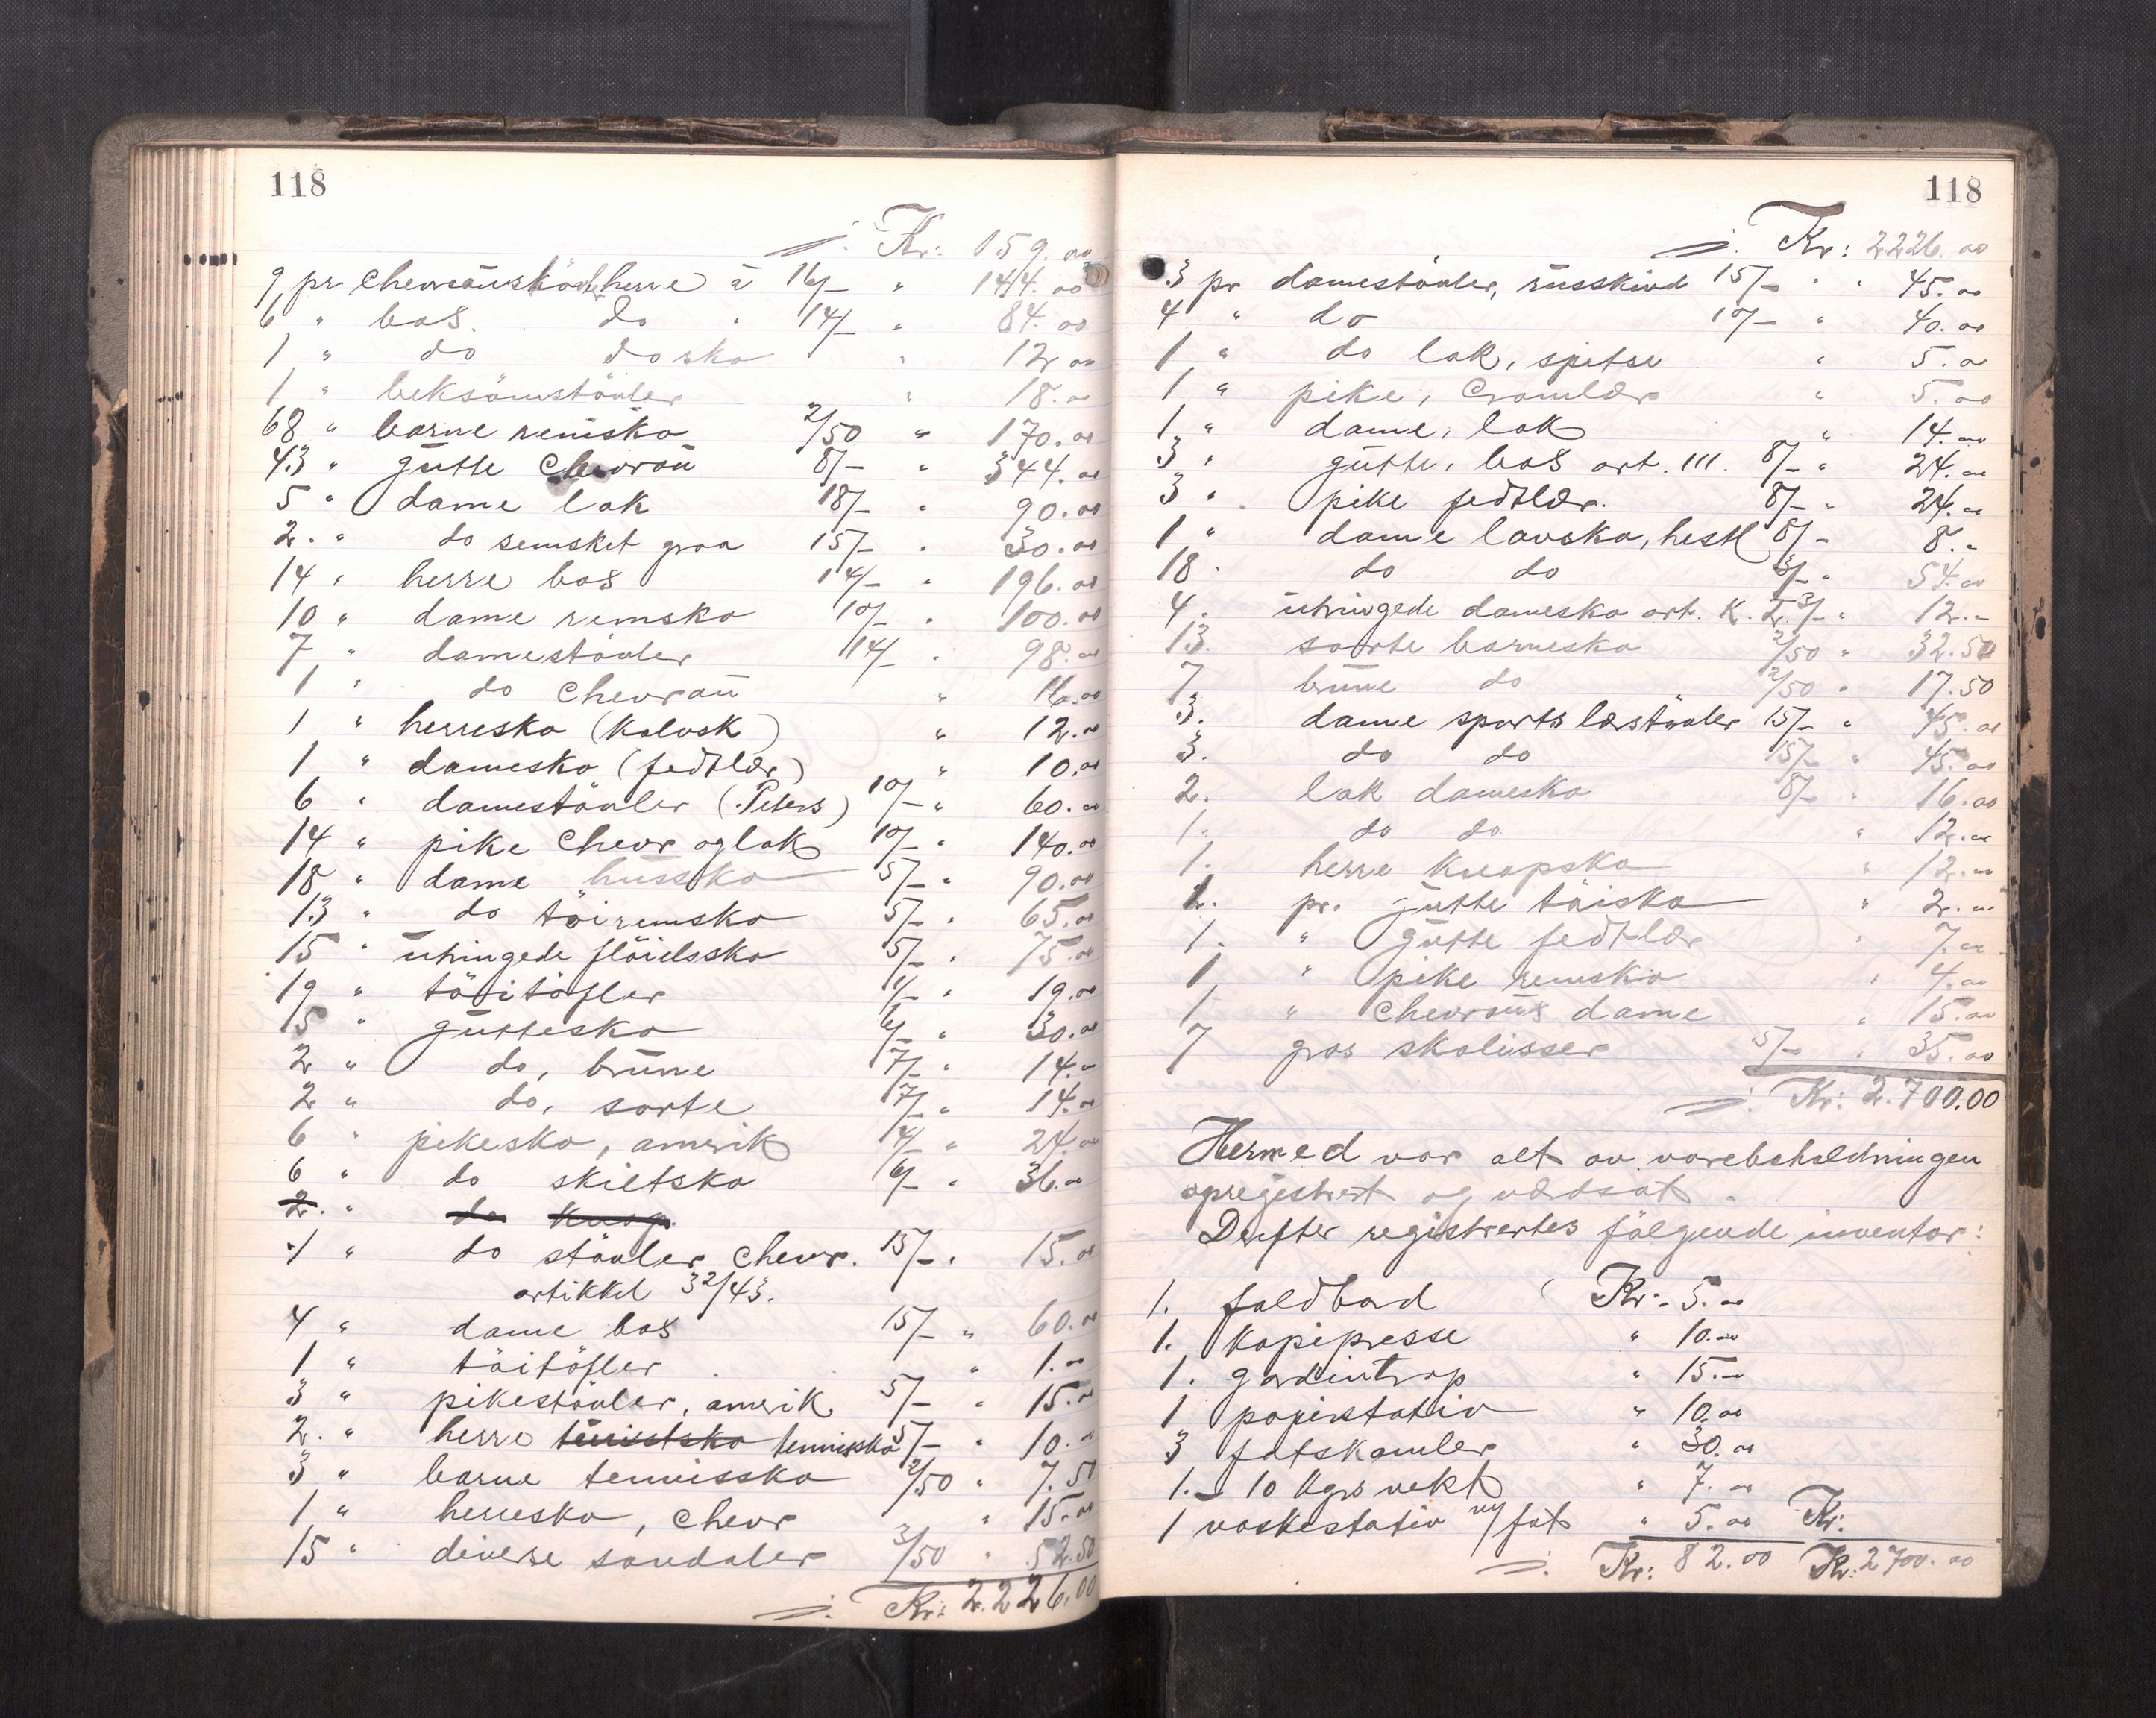 118
Kr: 159.00
9 pr chevrauxstövl. herre à 16/- " 144.00
6 " box do " 14/- " 84.00
1 " do do sko " 12.00
1 " beksömstövler " 18.00
68 " barne remsko 2/50 " 170.00
43 " gutte chevrau 8/- " 344.00
5 " dame lak 18/- " 90.00
2. " do semsket graa 15/- " 30.00
14 " herre box 14/- " 196.00
10 " dame remsko 10/- " 100.00
7 " damestövler 14/- " 98.00
1 " do chevrau " 16.00
1 " herresko (kalvsk) " 12.00
1 " damesko (fedtlær) " 10.00
6 " damestövler (Peters) 10/- " 60.00
14 " pike chevr og lak 10/- " 140.00
18 " dame hussko 5/- " 90.00
13 " do töiremsko 5/- " 65.00
15 " utringede flöielssko 5/- " 75.00
19 " töitöfler 1/- " 19.00
5 " guttesko 6/- " 30.00
2 " do, brune 7/- " 14.-
2 " do, sorte 7/- " 14.00
6 " pikesko, amerik 4/- " 24.00
6 " do skiltsko 6/- " 36.00
2. " do knap.
1 " do stövler chevr. 15/- " 15.00
artikkel 32/43.
4 " dame box 15/- " 60.00
1 " töitöfler " 1.00
3 " pikestövler, amerik 5/- " 15.00
2. " herre turistsko tennissko 5/- " 10.00
3 " barne tennissko 2/50 " 7.50
1 " herresko, chevr " 15.00
15 " diverse sandaler 3/50 " 52.50
Kr: 2.226.00
118
Kr: 2226.00
3 pr damestövler, russkind 15/- " 45.00
4 " do 10/- " 40.00
1 " do lak, spitse " 5.00
1 " pike, cromlær " 5.00
1 " dame, lak " 14.00
3 " gutte, box art. 111. 8/- " 24.00
3 " pike fedtlær. 8/- " 24.00
1 " dame lavsko, hestl 8/- 8.-
18. do do 3/- " 54.00
4. utringede damesko art. K. I. 3/- " 12.-
13. sorte barnesko 2/50 " 32.50
7 brune do 2/50 " 17.50
3. dame sportslærstövler 15/- " 45.00
3. do do 15/- " 45.00
2. lak damesko 8/- " 16.00
1. do do " 12.00
1. herre knapsko " 12.00
1. pr. gutte töisko " 2.00
1. " gutte fedtlær " 7.00
1 " pike remsko " 4.00
1 " chevraux dame " 15.00
7 gros skolisser 5/- " 35.00
Kr: 2.700.00
Hermed var alt av varebeholdningen
opregistrert og værdsat.
Derefter registrertes fölgende inventar:
1. foldbord Kr. 5.00
1. kopipresse " 10.00
1. gardintrap " 15.-
1 papirstativ " 10.00
3 fotskamler " 30.00
1. 10 kgrs vekt " 7.00
1 vaskestativ m/fat " 5.00 Kr.
Kr: 82.00 Kr. 2700.00